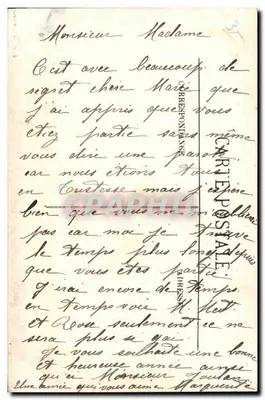 Monsieur Madame
C'est avec beaucoup de
regret chère Marie que
j'ai appris que vous
étiez partie sans même
vous dire une parole
car nous étions tous
en tristesse mais j'espère
bien que vous ne m'oublierez
pas car moi je trouve
le temps plus long depuis
que vous êtes partie
J'irai encore de temps
en temps voir M
et Rose seulement ce ne
sera plus si gai
Je vous souhaite une bonne
et heureuse année ainsi
qu'à Monsieur
Une amie qui vous aime Marguerite
CORRESPONDANCE
CARTE POSTALE
ADRESSE